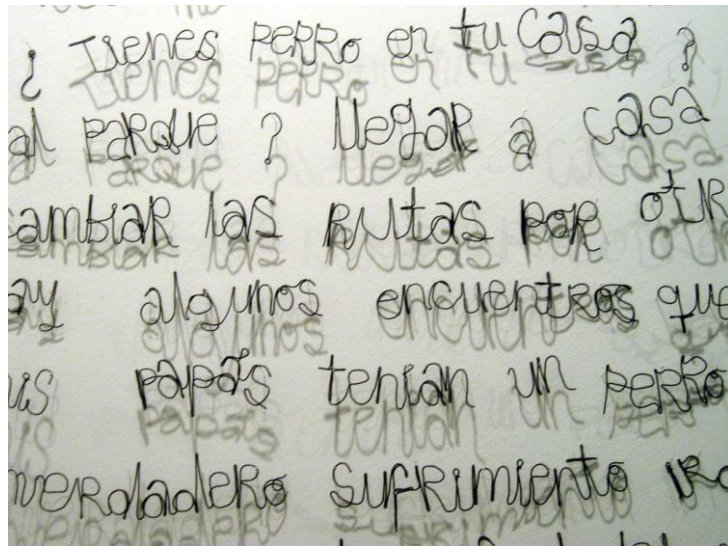 ¿ Tienes perro en tu casa ?
al parque ? llegar a casa
cambiar las rutas por otr
ay algunos encuentros que
uis papás tenian un perro
verdadero sufrimiento